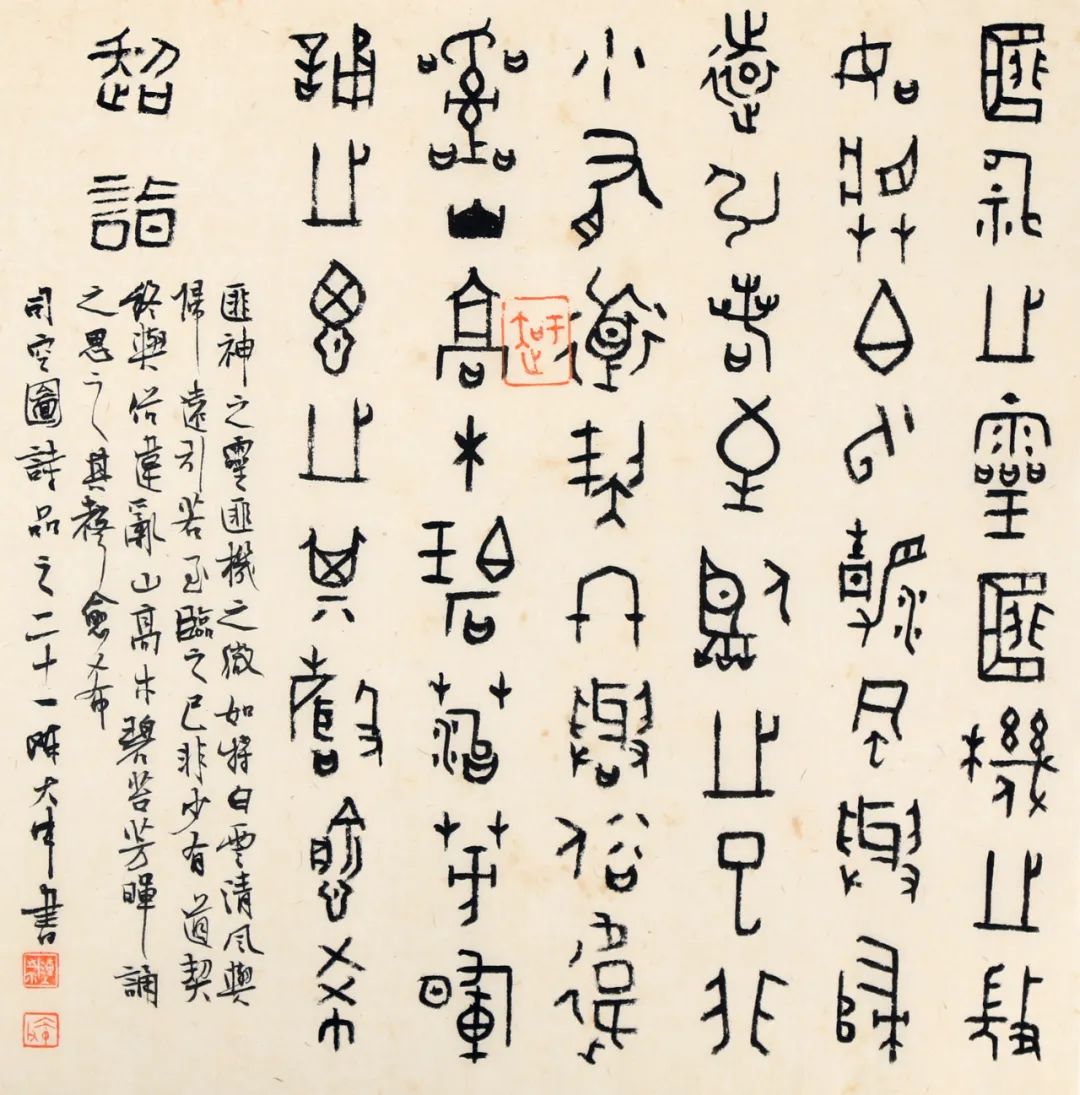 匪神之靈匪機之微
如將白云清風與歸
遠引若至臨之已非
少有道契終與俗違
亂山高木碧苔芳暉
誦之思之其聲愈希
超詣
匪神之靈匪機之微如將白雲清風與
歸遠引若至臨之已非少有道契
終與俗違亂山高木碧苔芳暉誦
之思之其聲愈希
司空圖詩品之二十一陳大中書